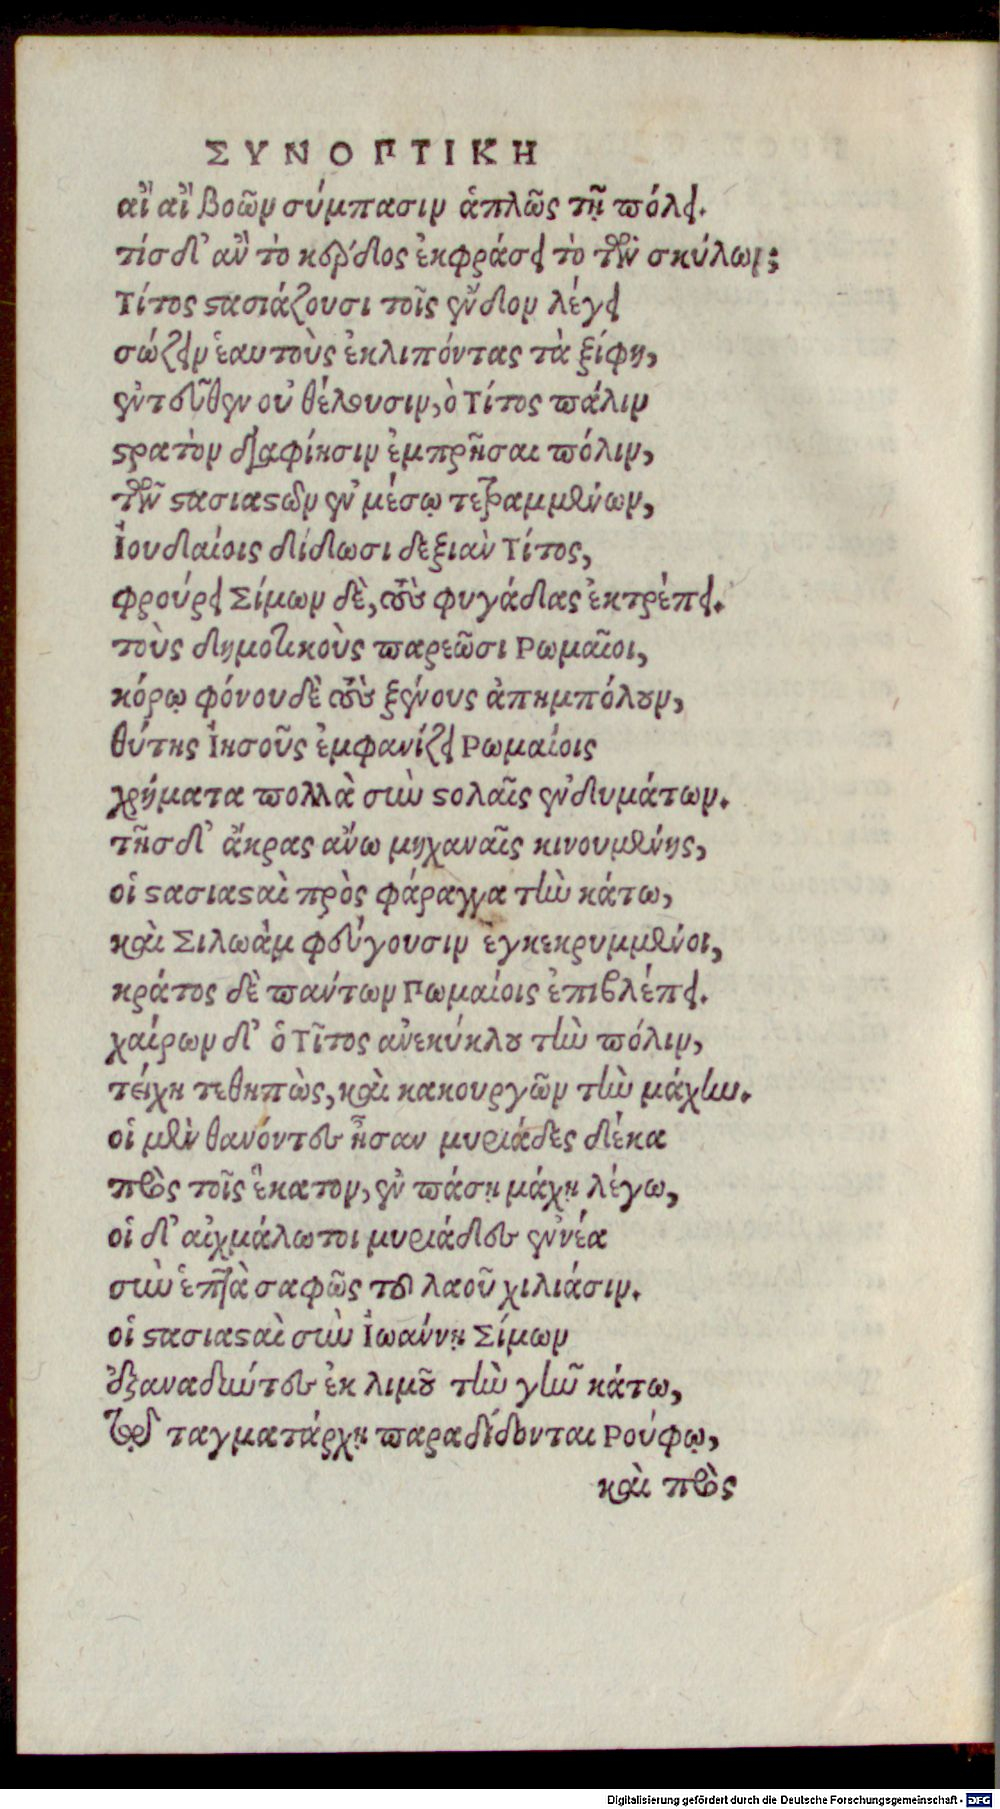 ΣΥΝΟΠΤΙΚΗ
αἲ αἲ βοῶν σύμπασιν ἁπλῶς τῇ πόλει.
τίς δ' ἂν τὸ κέρδος ἐκφράσει τὸ τῶν σκύλων;
Τίτος στασιάζουσι τοῖς ἔνδον λέγει
σώζειν ἑαυτοὺς ἐκλιπόντας τὰ ξίφη,
ἐντεῦθεν οὐ θέλουσιν, ὁ Τίτος πάλιν
στρατὸν διαφίησιν ἐμπρῆσαι πόλιν,
τῶν στασιαστῶν ἐν μέσῳ τεθραμμένων,
Ἰουδαίοις δίδωσι δεξιὰν Τίτος,
φρούρει Σίμων δὲ, τοὺς φυγάδας ἐκτρέπει.
τοὺς δημοτικοὺς παρεῶσι Ρωμαῖοι,
κόρῳ φόνου δὲ τοὺς ξένους ἀπημπόλουν,
θύτης Ἰησοῦς ἐμφανίζει Ρωμαίοις
χρήματα πολλὰ σὺν στολαῖς ἐνδυμάτων.
τῆς δ' ἄκρας ἄνω μηχαναῖς κινουμένης,
οἱ στασιασταὶ πρὸς φάραγγα τὴν κάτω,
καὶ Σιλωὰμ φεύγουσιν ἐγκεκρυμμένοι,
κράτος δὲ πάντων Ρωμαίοις ἐπιβλέπει.
χαίρων δ' ὁ Τῖτος ἀνεκύκλου τὴν πόλιν,
τείχη τεθηπὼς, καὶ κακουργῶν τὴν μάχην.
οἱ μὲν θανόντες ἦσαν μυριάδες δέκα
πρὸς τοῖς ἕκατον, ἐν πάσῃ μάχῃ λέγω,
οἱ δ' αἰχμάλωτοι μυριάδες ἐννέα
σὺν ἑπτὰ σαφῶς τοῦ λαοῦ χιλιάσιν.
οἱ στασιασταὶ σὺν Ἰωάννῃ Σίμων
ἐξαναδύντες ἐκ λιμοῦ τὴν γῆν κάτω,
τῷ ταγματάρχῃ παραδίδονται Ρούφῳ,
καὶ πρὸς
Digitalisierung gefördert durch die Deutsche Forschungsgemeinschaft - DFG